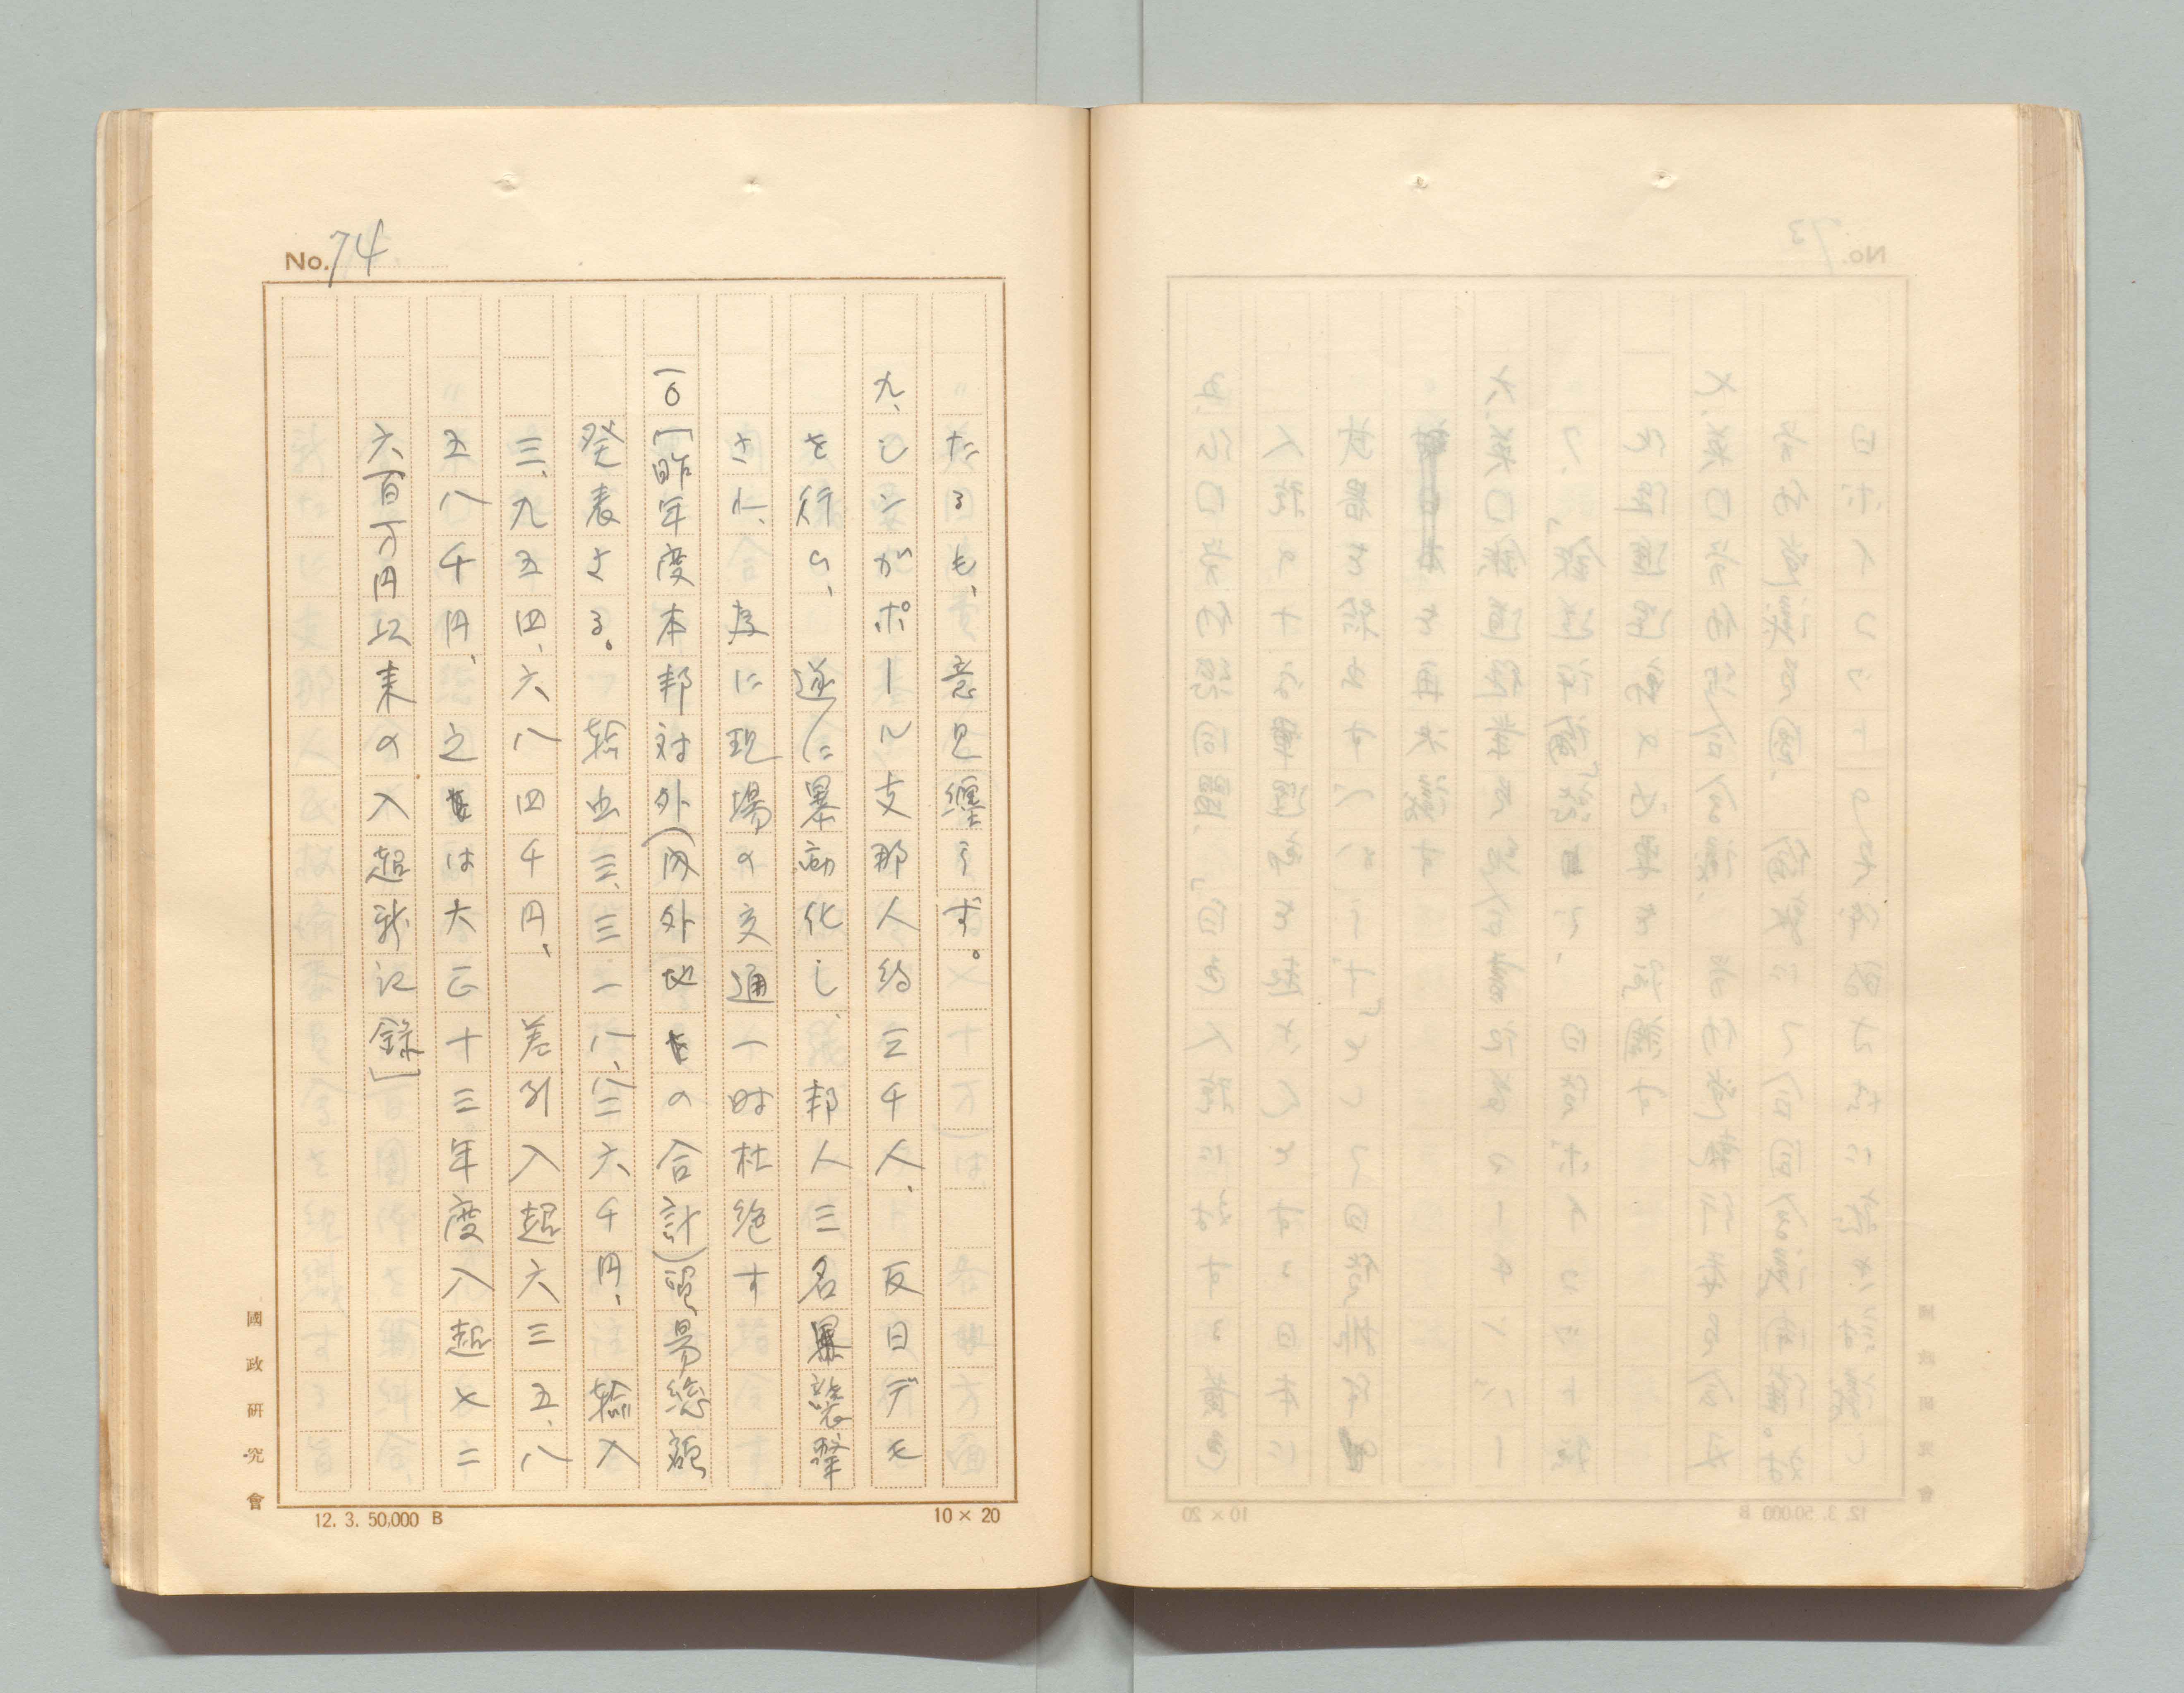 No. 74
たるも、意見纏らず。
九、シンガポール支那人約三千人、反日デモ
を行ひ、遂に暴動化し、邦人三名襲撃
され、為に現場の交通一時杜絶す
一〇、[昨年度本邦対外(内外地の合計)貿易総額
発表さる。輸出三、三一八、八二六千円、輸入
三、九五四、六八四千円、差引入超六三五、八
五八千円、之は大正十三年度入超七二
六百万円以来の入超新記録]
國政研究會
12. 3. 50,000 B
10 × 20